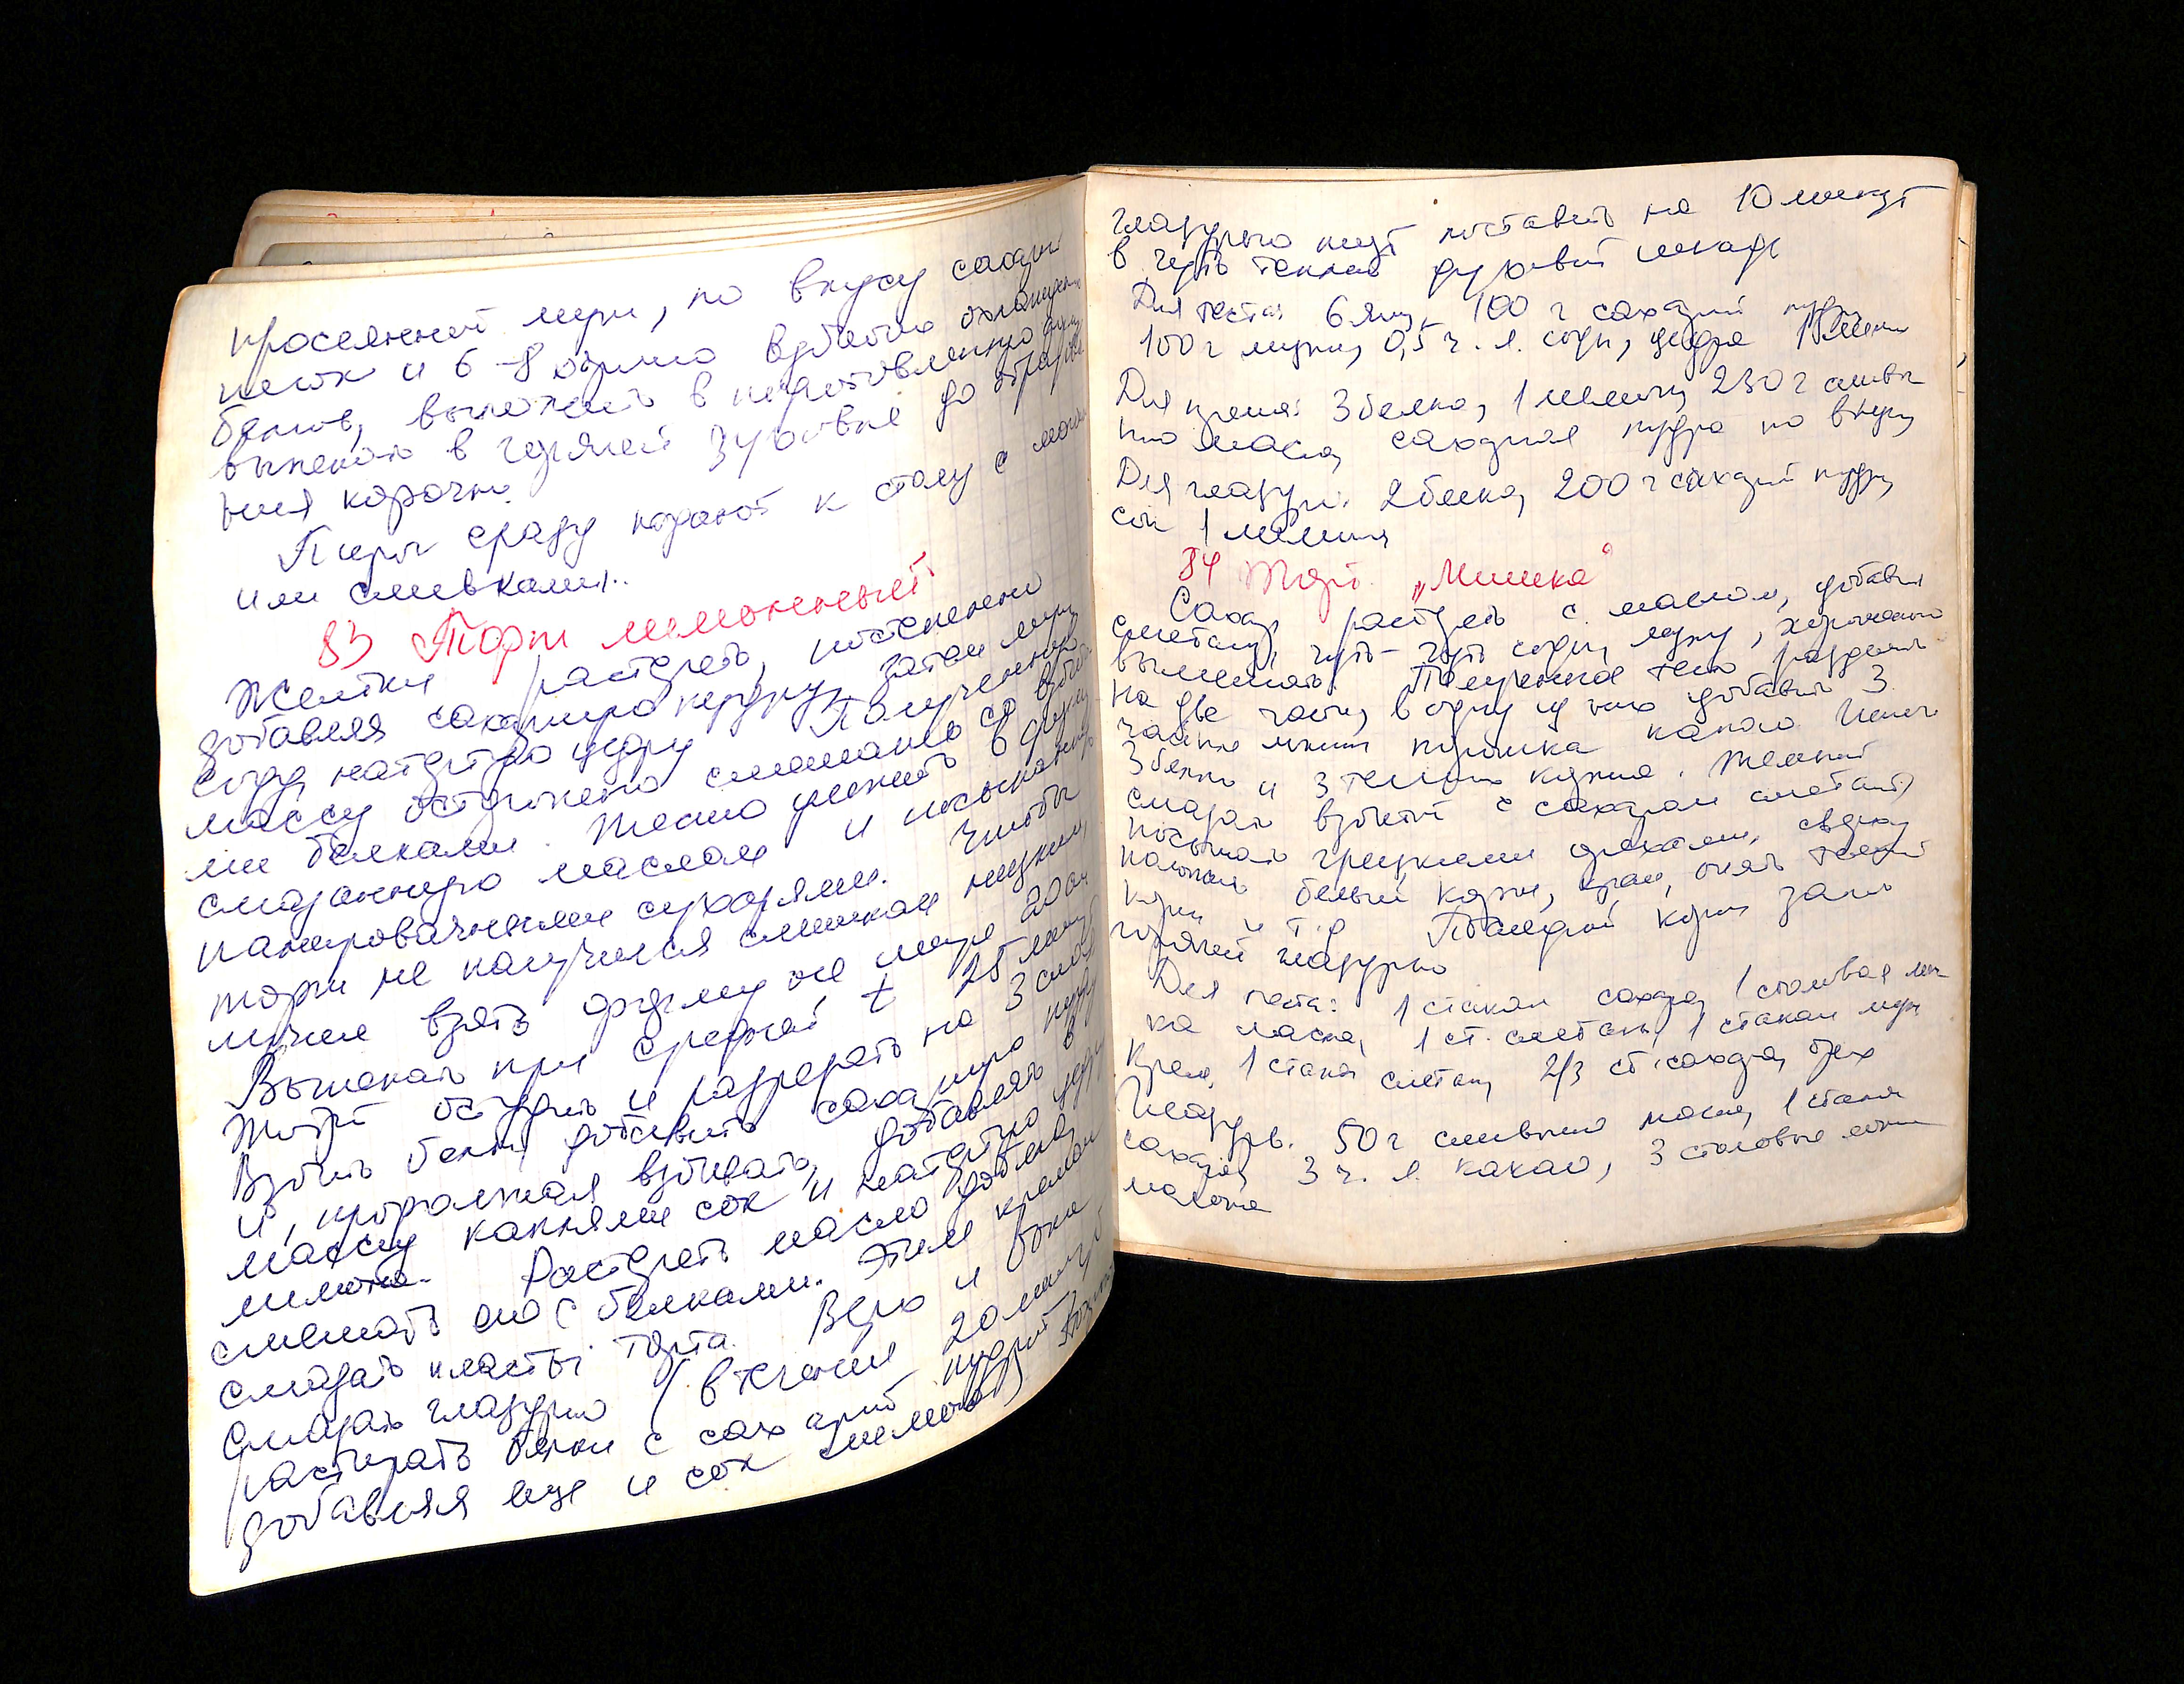 просеянной муки, по вкусу сахарн
песок и 6-8 хорошо взбитых охлажденн
белков, выложить в подготовленную форму
выпекать в горячей духовке до образова
ния корочки.
Пирог сразу подают к столу с молок
или сливками.
83 Торт лимонный
Желтки растереть, постепенно
добавляя сахарную пудру, затем муку,
соду, натертую цедру. Полученную
массу осторожно смешать со взбиты
ми белками. Тесто уложить в форму,
смазанную маслом и посыпанную
панировочными сухарями. Чтобы
торт не получился слишком низким,
лучше взять форму не шире 20 см
Выпекать при средней t 25 минут
Торт остудить и разрезать на 3 слоя
Взбить белки, добавить сахарную пудру
и, продолжая взбивать, добавлять в
массу каплями сок и натертую цедру
лимона. Растереть масло добела,
смешать его с белками. Этим кремом
смазать пласты торта. Верх и бока
смазать глазурью (в течении 20 минут
растирать белки с сахарной пудрой,
добавляя еще и сок лимона)
глазурью торт поставить на 10 минут
в чуть теплый духовой шкаф
Для теста: 6 яиц, 100 г сахарной пудры
100 г муки, 0,5 ч. л. соды, цедра 1 лимона
Для крема: 3 белка, 1 лимон, 250 г сливоч
ного масла, сахарная пудра по вкусу,
Для глазури: 2 белка, 200 г сахарной пудры,
сок 1 лимона
84 Торт „Мишка“
Сахар растереть с маслом, добавить
сметану, чуть-чуть соды, муку, хорошенько
вымешать. Полученное тесто разделить
на две части, в одну из них добавить 3
чайные ложки порошка какао. Испечь
3 белых и 3 темных коржа. Темный
смазать взбитой с сахаром сметаной,
посыпать грецкими орехами, сверху
положить белый корж, крем, опять темный
корж и т.д Последний корж залить
горячей глазурью
Для теста: 1 стакан сахара, 1 столовая лож
ка масла, 1 ст. сметаны, 1 стакан муки
Крем. 1 стакан сметаны, 2/3 ст. сахара, орех
Глазурь. 50 г сливочного масла, 1 стакан
сахара, 3 ч. л. какао, 3 столовые ложки
молока